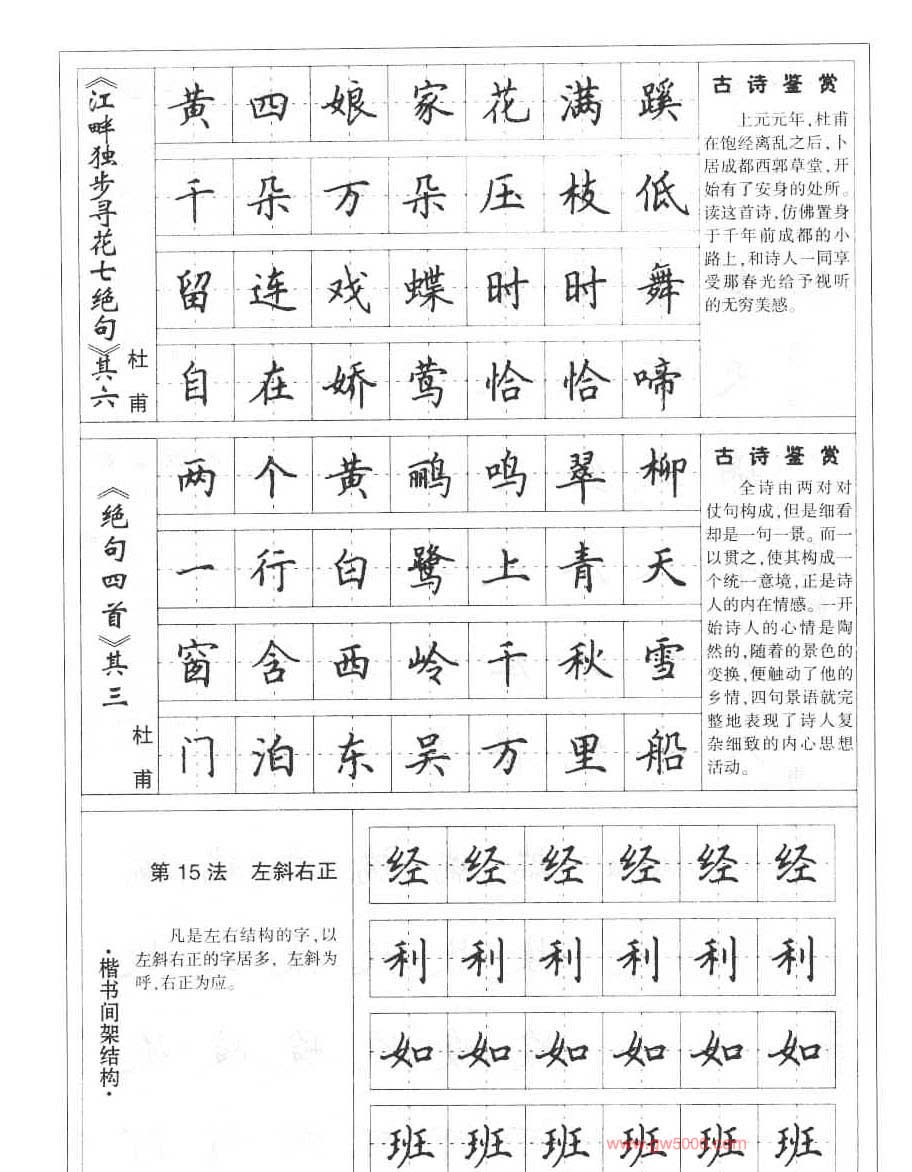 《江畔独步寻花七绝句》其六
杜甫
黄四娘家花满蹊
千朵万朵压枝低
留连戏蝶时时舞
自在娇莺恰恰啼
古诗鉴赏
上元元年,杜甫
在饱经离乱之后,卜
居成都西郭草堂,开
始有了安身的处所。
读这首诗,仿佛置身
于千年前成都的小
路上,和诗人一同享
受那春光给予视听
的无穷美感。
《绝句四首》其三
杜甫
两个黄鹂鸣翠柳
一行白鹭上青天
窗含西岭千秋雪
门泊东吴万里船
古诗鉴赏
全诗由两对对
仗句构成,但是细看
却是一句一景。而一
以贯之,使其构成一
个统一意境,正是诗
人的内在情感。一开
始诗人的心情是陶
然的,随着的景色的
变换,便触动了他的
乡情,四句景语就完
整地表现了诗人复
杂细致的内心思想
活动。
·楷书间架结构·
第15法 左斜右正
凡是左右结构的字,以
左斜右正的字居多,左斜为
呼,右正为应。
经经经经经经
利利利利利利
如如如如如如
班班班班班班